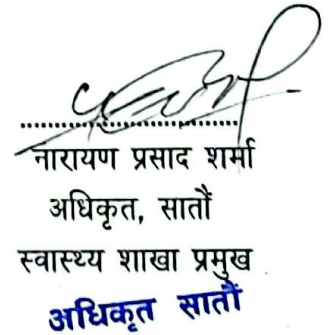 नारायण प्रसाद शर्मा
अधिकृत, सातौं
स्वास्थ्य शाखा प्रमुख
अधिकृत सातौं